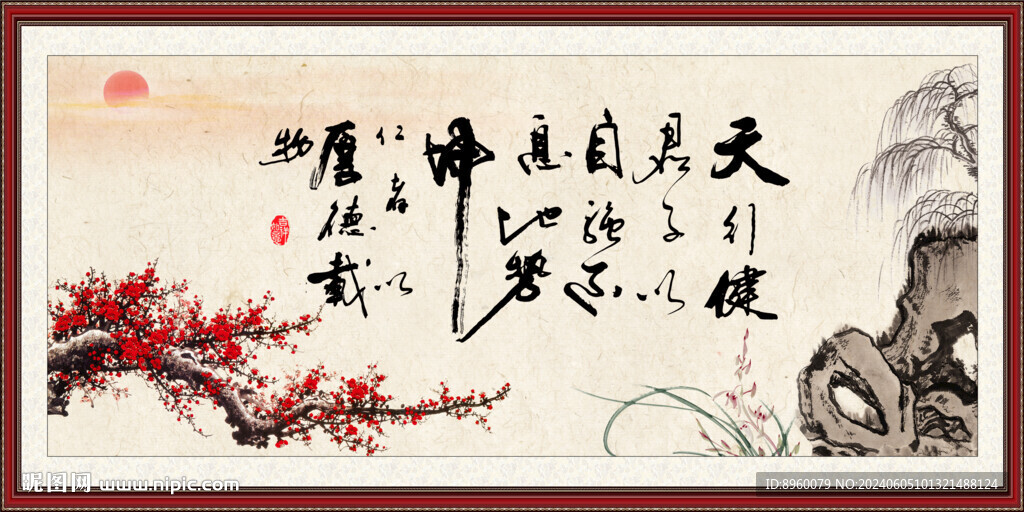 天行健
君子以
自强不
息地势
坤
仁者以
厚德载
物
昵图网 www.nipic.com
ID:8960079 NO:20240605101321488124